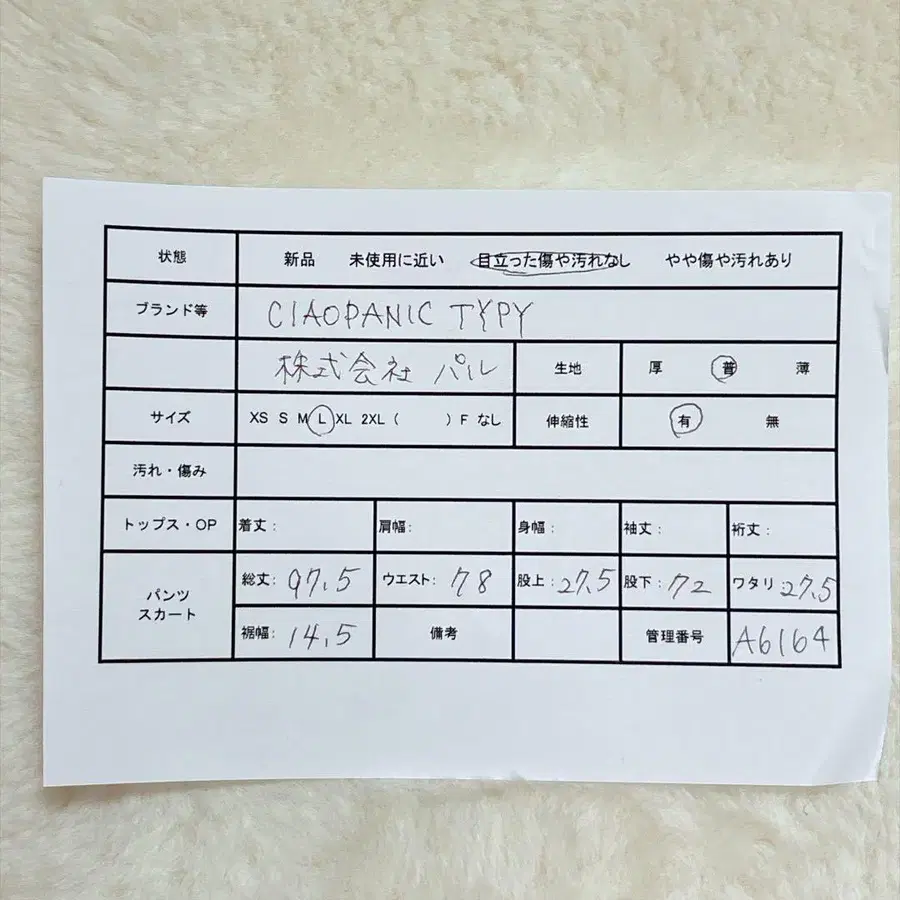 状態 新品 未使用に近い 目立った傷や汚れなし やや傷や汚れあり
ブランド等 CIAOPANIC TYPY
株式会社 パル 生地 厚 普 薄
サイズ XS S M L XL 2XL ( ) F なし 伸縮性 有 無
汚れ・傷み
トップス・OP 着丈: 肩幅: 身幅: 袖丈: 裄丈:
パンツ スカート
総丈: 97.5 ウエスト: 78 股上: 27.5 股下: 72 ワタリ: 27.5
裾幅: 14.5 備考 管理番号 A6164